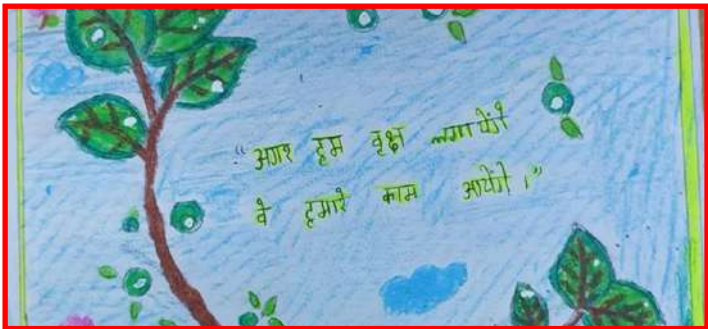 "अगर हम वृक्ष लगायेंगे
वे हमारे काम आयेंगे ।"